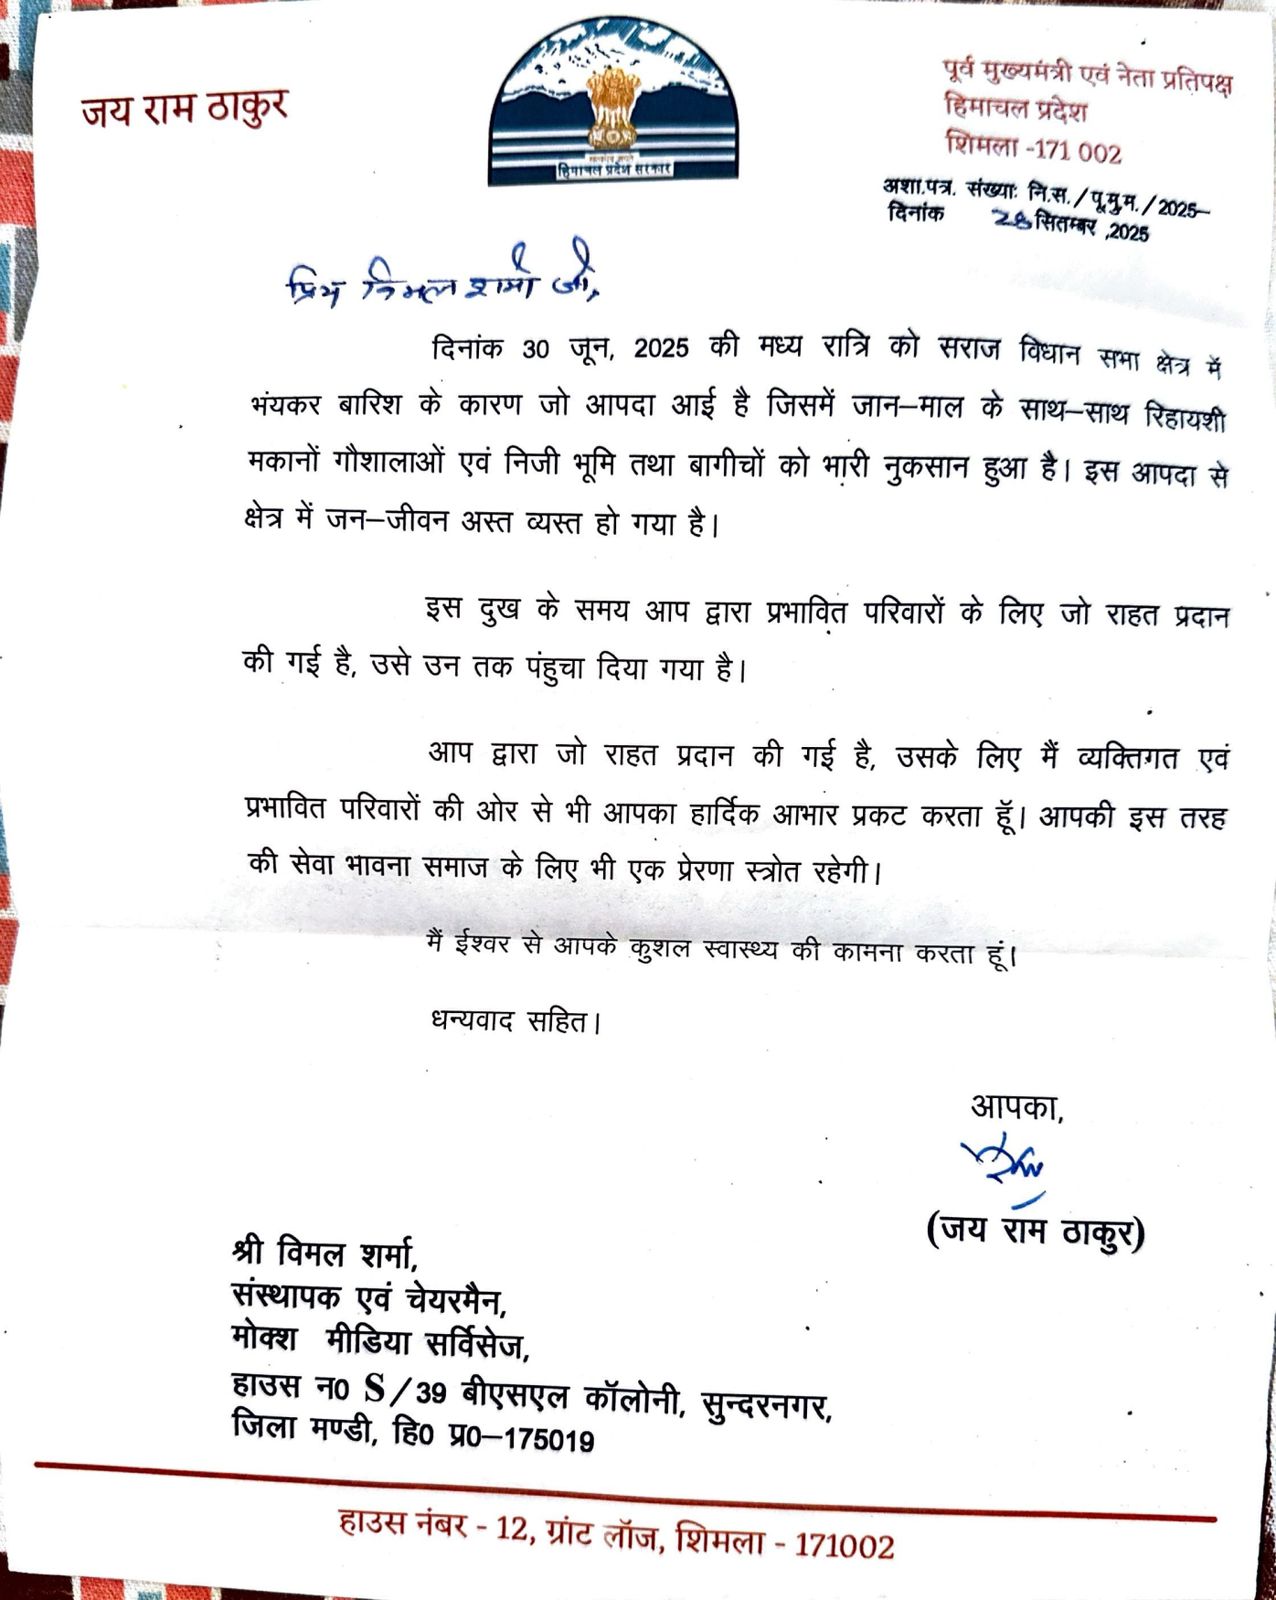 जय राम ठाकुर
हिमाचल प्रदेश सरकार
पूर्व मुख्यमंत्री एवं नेता प्रतिपक्ष
हिमाचल प्रदेश
शिमला -171 002
अशा.पत्र. संख्याः नि.स./पू.मु.म./2025-
दिनांक 28 सितम्बर ,2025
प्रिय विमल शर्मा जी,
दिनांक 30 जून, 2025 की मध्य रात्रि को सराज विधान सभा क्षेत्र में
भंयकर बारिश के कारण जो आपदा आई है जिसमें जान–माल के साथ–साथ रिहायशी
मकानों गौशालाओं एवं निजी भूमि तथा बागीचों को भारी नुकसान हुआ है। इस आपदा से
क्षेत्र में जन–जीवन अस्त व्यस्त हो गया है।
इस दुख के समय आप द्वारा प्रभावित परिवारों के लिए जो राहत प्रदान
की गई है, उसे उन तक पंहुचा दिया गया है।
आप द्वारा जो राहत प्रदान की गई है, उसके लिए मैं व्यक्तिगत एवं
प्रभावित परिवारों की ओर से भी आपका हार्दिक आभार प्रकट करता हूॅ। आपकी इस तरह
की सेवा भावना समाज के लिए भी एक प्रेरणा स्त्रोत रहेगी।
मैं ईश्वर से आपके कुशल स्वास्थ्य की कामना करता हूं।
धन्यवाद सहित।
आपका,
(जय राम ठाकुर)
श्री विमल शर्मा,
संस्थापक एवं चेयरमैन,
मोक्श मीडिया सर्विसेज,
हाउस न0 S/39 बीएसएल कॉलोनी, सुन्दरनगर,
जिला मण्डी, हि0 प्र0–175019
हाउस नंबर - 12, ग्रांट लॉज, शिमला - 171002